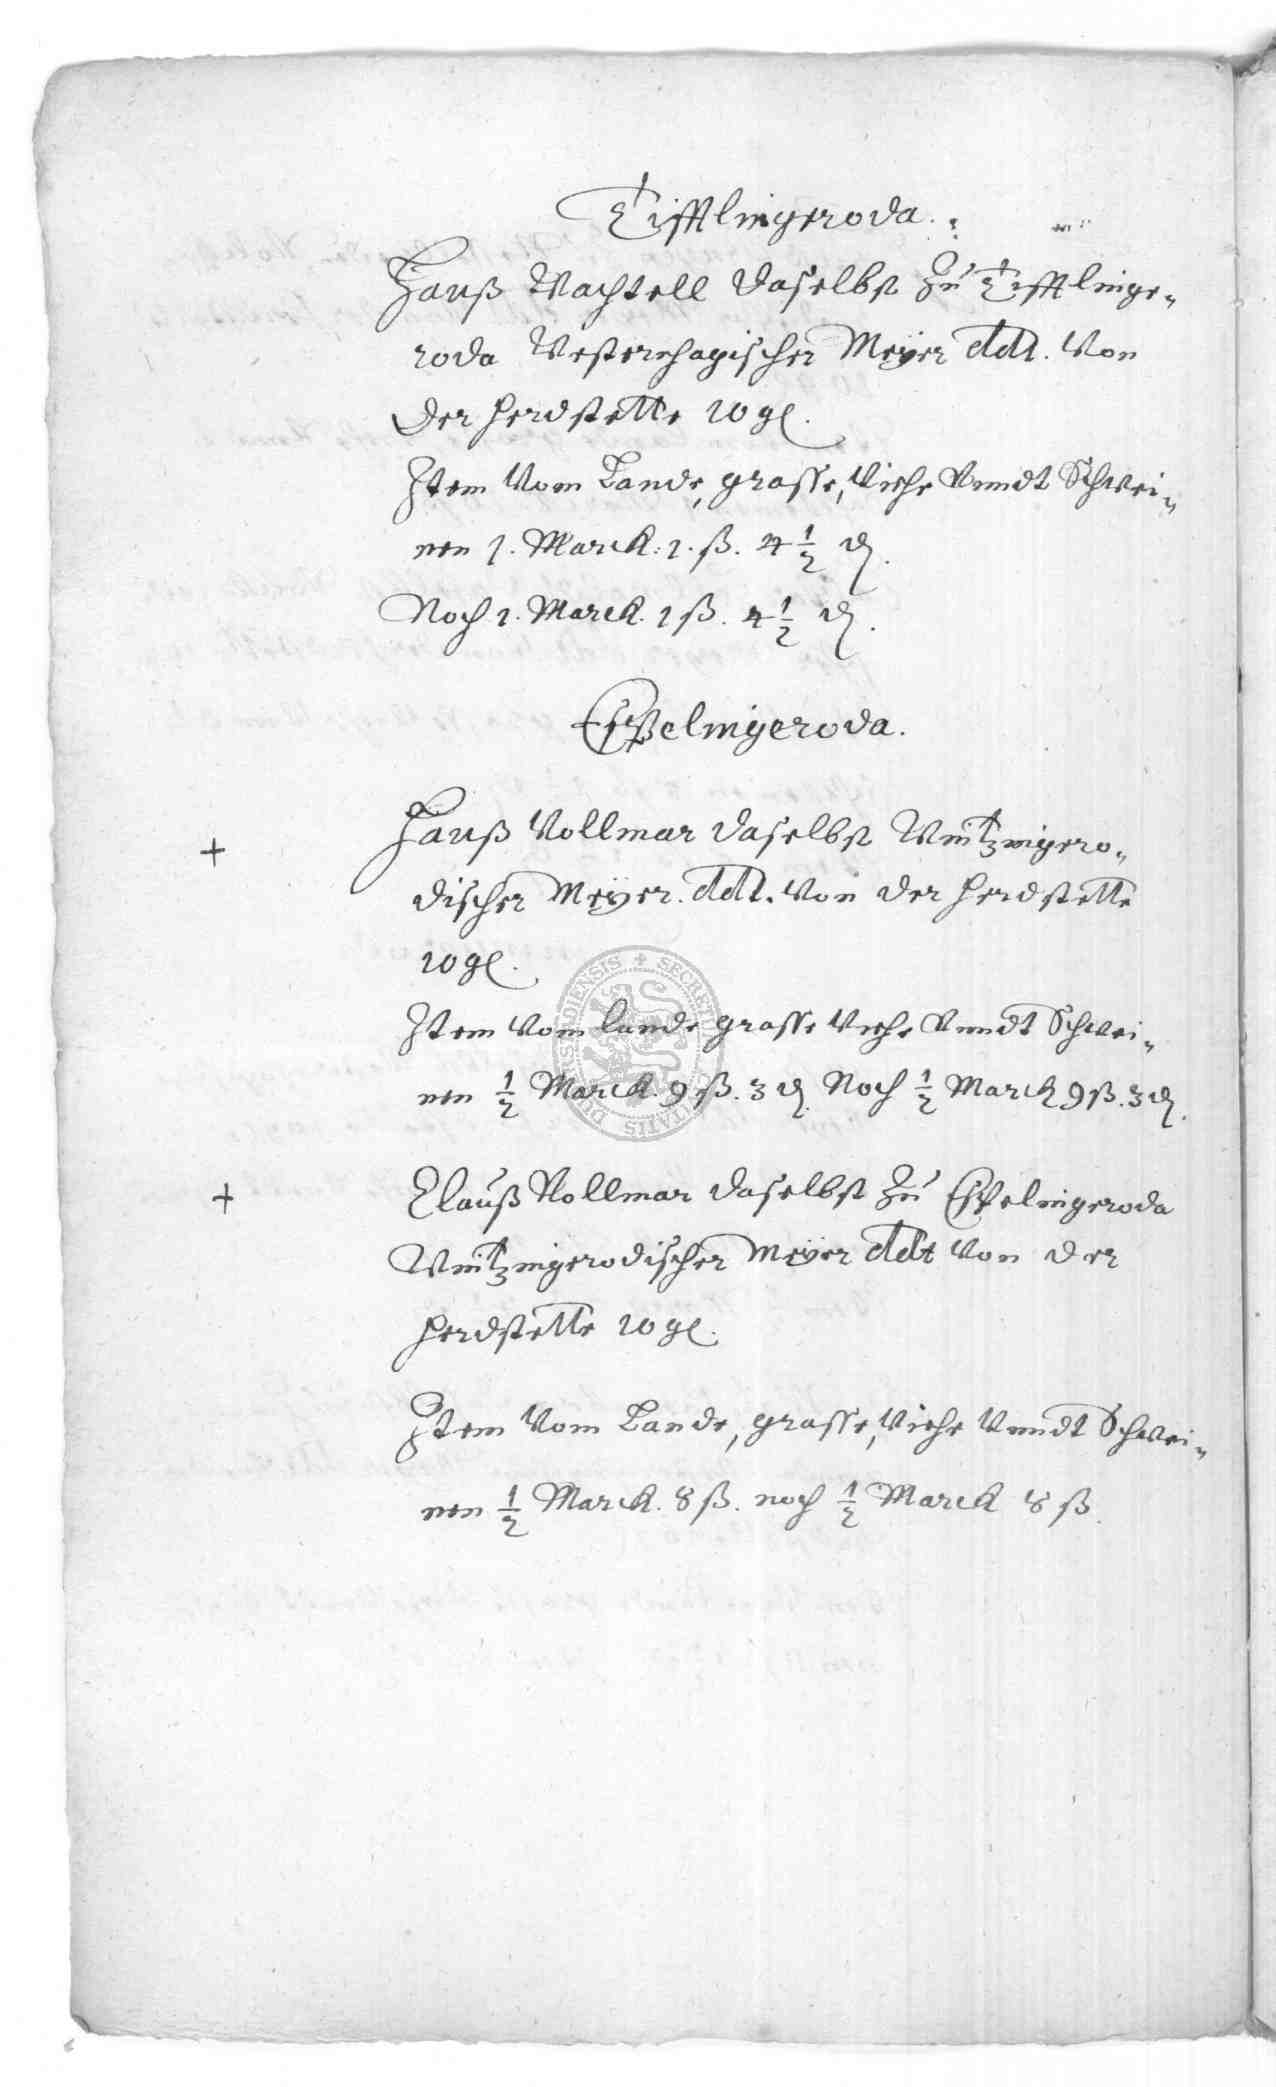 Tifftlingeroda.
Hanß Wachtell daselbst zu Tifftlinge-
roda Westernhagischer Meÿer ddt. Von
der herdstette 10 gl.
Item Vom Lande, grasse, Viehe Vnndt Schwei-
nen 1. Marck: 1. ß. 4 1/2 ₰.
Noch 1. Marck. 1 ß. 4 1/2 ₰.
Eßelingeroda.
+ Hanß Vollmar daselbst Wintzingero-
discher Meÿer. ddt. Von der herdstette
10 gl.
Item Vom lande grasse Viehe Vnndt Schwei-
nen 1/2 Marck. 9 ß. 3 ₰. Noch 1/2 Marck 9 ß. 3 ₰.
+ Clauß Vollmar daselbst zu Eßelingeroda
Wintzingerodischer Meÿer ddt Von der
herdstette 10 gl.
Item Vom Lande, grasse, Viehe Vnndt Schwei-
nen 1/2 Marck. 8 ß. noch 1/2 Marck 8 ß.